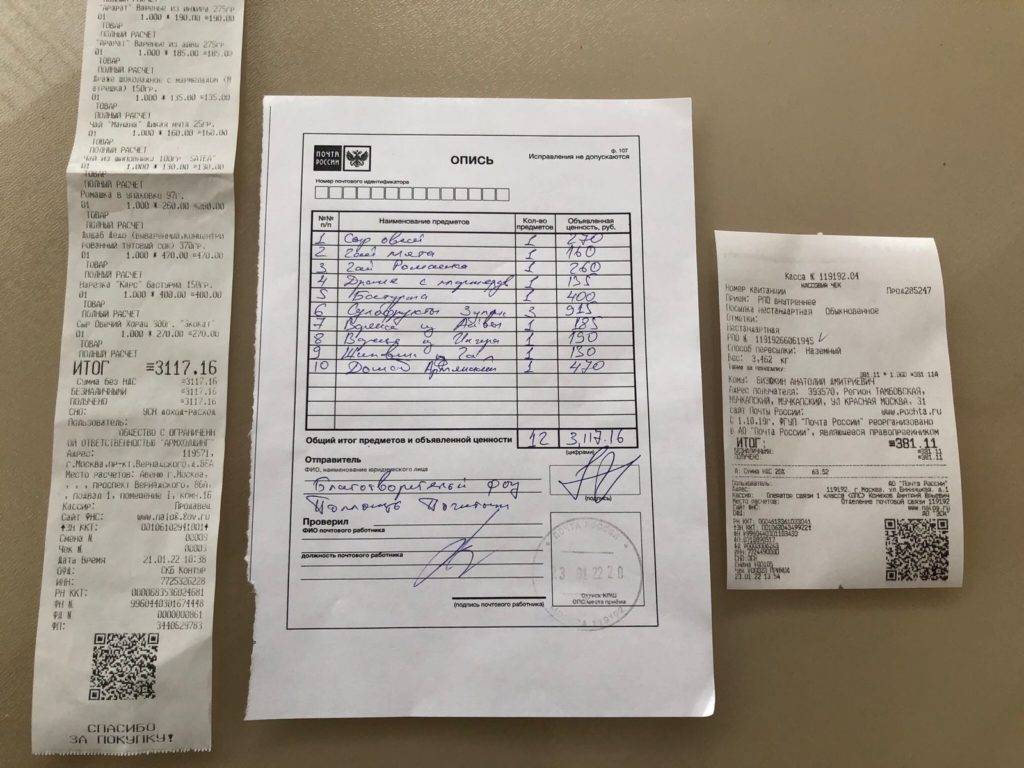 ПОЛНЫЙ РАСЧЕТ
"Арарат" Варенье из инжира 275гр
01 1.000 * 190.00 =190.00
ТОВАР
ПОЛНЫЙ РАСЧЕТ
"Арарат" Варенье из айвы 275гр
01 1.000 * 185.00 =185.00
ТОВАР
ПОЛНЫЙ РАСЧЕТ
Драже шоколадное с мармеладом (М
атрешка) 150гр.
01 1.000 * 135.00 =135.00
ТОВАР
ПОЛНЫЙ РАСЧЕТ
Чай "Манана" Дикая мята 25гр.
01 1.000 * 160.00 =160.00
ТОВАР
ПОЛНЫЙ РАСЧЕТ
Чай из шиповника 100гр "SATEA"
01 1.000 * 130.00 =130.00
ТОВАР
ПОЛНЫЙ РАСЧЕТ
Ромашка в упаковке 97г.
01 1.000 * 260.00 =260.00
ТОВАР
ПОЛНЫЙ РАСЧЕТ
Дедо (вываренный,концентри
рованный тутовый сок) 370гр.
01 1.000 * 470.00 =470.00
ТОВАР
ПОЛНЫЙ РАСЧЕТ
Нарезка "Карс" Бастурма 150гр.
01 1.000 * 400.00 =400.00
ТОВАР
ПОЛНЫЙ РАСЧЕТ
Сыр Овечий Хорац 300г. "Экокат"
01 1.000 * 270.00 =270.00
ТОВАР
ПОЛНЫЙ РАСЧЕТ
ИТОГ =3117.16
Сумма без НДС =3117.16
БЕЗНАЛИЧНЫМИ =3117.16
ПОЛУЧЕНО =3117.16
СНО: УСН доход-расход
Пользователь:
ОБЩЕСТВО С ОГРАНИЧЕН
НОЙ ОТВЕТСТВЕННОСТЬЮ "АРМХОЛДИНГ"
Адрес: 119571,
г.Москва,пр-кт.Вернадского,д.86А
Место расчетов: Авеню г.Москва,
, , , проспект Вернадского, 86А,
, подвал 1, помещение 1, комн.16
Кассир: Продавец
Сайт ФНС: www.nalog.gov.ru
ЗН ККТ:
Смена N
Чек N
Дата Время 21.01.22 10:38
ОФД: СКБ Контур
ИНН: 7725326228
РН ККТ: 0000683536024681
ФН N 9960440301674448
ФД N 0000000861
ФП: 3440629783
СПАСИБО
ЗА ПОКУПКУ!
ПОЧТА РОССИИ
ОПИСЬ
ф. 107
Исправления не допускаются
Номер почтового идентификатора
№№ п/п Наименование предметов Кол-во предметов Объявленная ценность, руб.
1 Сыр овечий 1 270
2 Чай мята 1 160
3 Чай Ромашка 1 260
4 Драже с мармелад 1 135
5 Бастурма 1 400
6 Сухофрукты 3 915
7 Варенье из Айвы 1 185
8 Варенье из Инжира 1 190
9 Шиповник Чай 1 130
10 Дошаб Армянский 1 470
Общий итог предметов и объявленной ценности 12 3,117.16
(цифрами)
Отправитель
ФИО, наименование юридического лица
Благотворительный фонд
Помощь
(подпись)
Проверил
ФИО почтового работника
должность почтового работника
(подпись почтового работника)
ПОЧТА РОССИИ
01 22 20
119192
Оттиск КПШ
ОПС места приёма
Касса N 119192.04
КАССОВЫЙ ЧЕК
Номер квитанции Прод205247
Прием: РПО внутреннее
Посылка нестандартная Обыкновенное
Отметки:
Нестандартная
РПО N 11919266061945
Способ пересылки: Наземный
Вес: 3,462 кг
Плата за пересылку:
381.11 * 1.000 =381.11А
Кому: АНАТОЛИЙ ДМИТРИЕВИЧ
Адрес получателя: 393570, Регион ТАМБОВСКАЯ,
МУЧКАПСКИЙ, МУЧКАПСКИЙ, УЛ КРАСНАЯ МОСКВА, 31
сайт Почты России: www.pochta.ru
С 1.10.19г. ФГУП "Почта России" реорганизовано
в АО "Почта России", являющееся правопреемником
ИТОГ: =381.11
БЕЗНАЛИЧНЫМИ: =381.11
ПОЛУЧЕНО: =381.11
А: Сумма НДС 20% 63.52
Пользователь: АО "Почта России"
Адрес: 119192, г Москва,
Кассир: Оператор связи 1 класса (ОПС)
Место расчетов: Отделение почтовой связи 119192
Сайт ФНС: www.nalog.ru
23.01.22 13:54